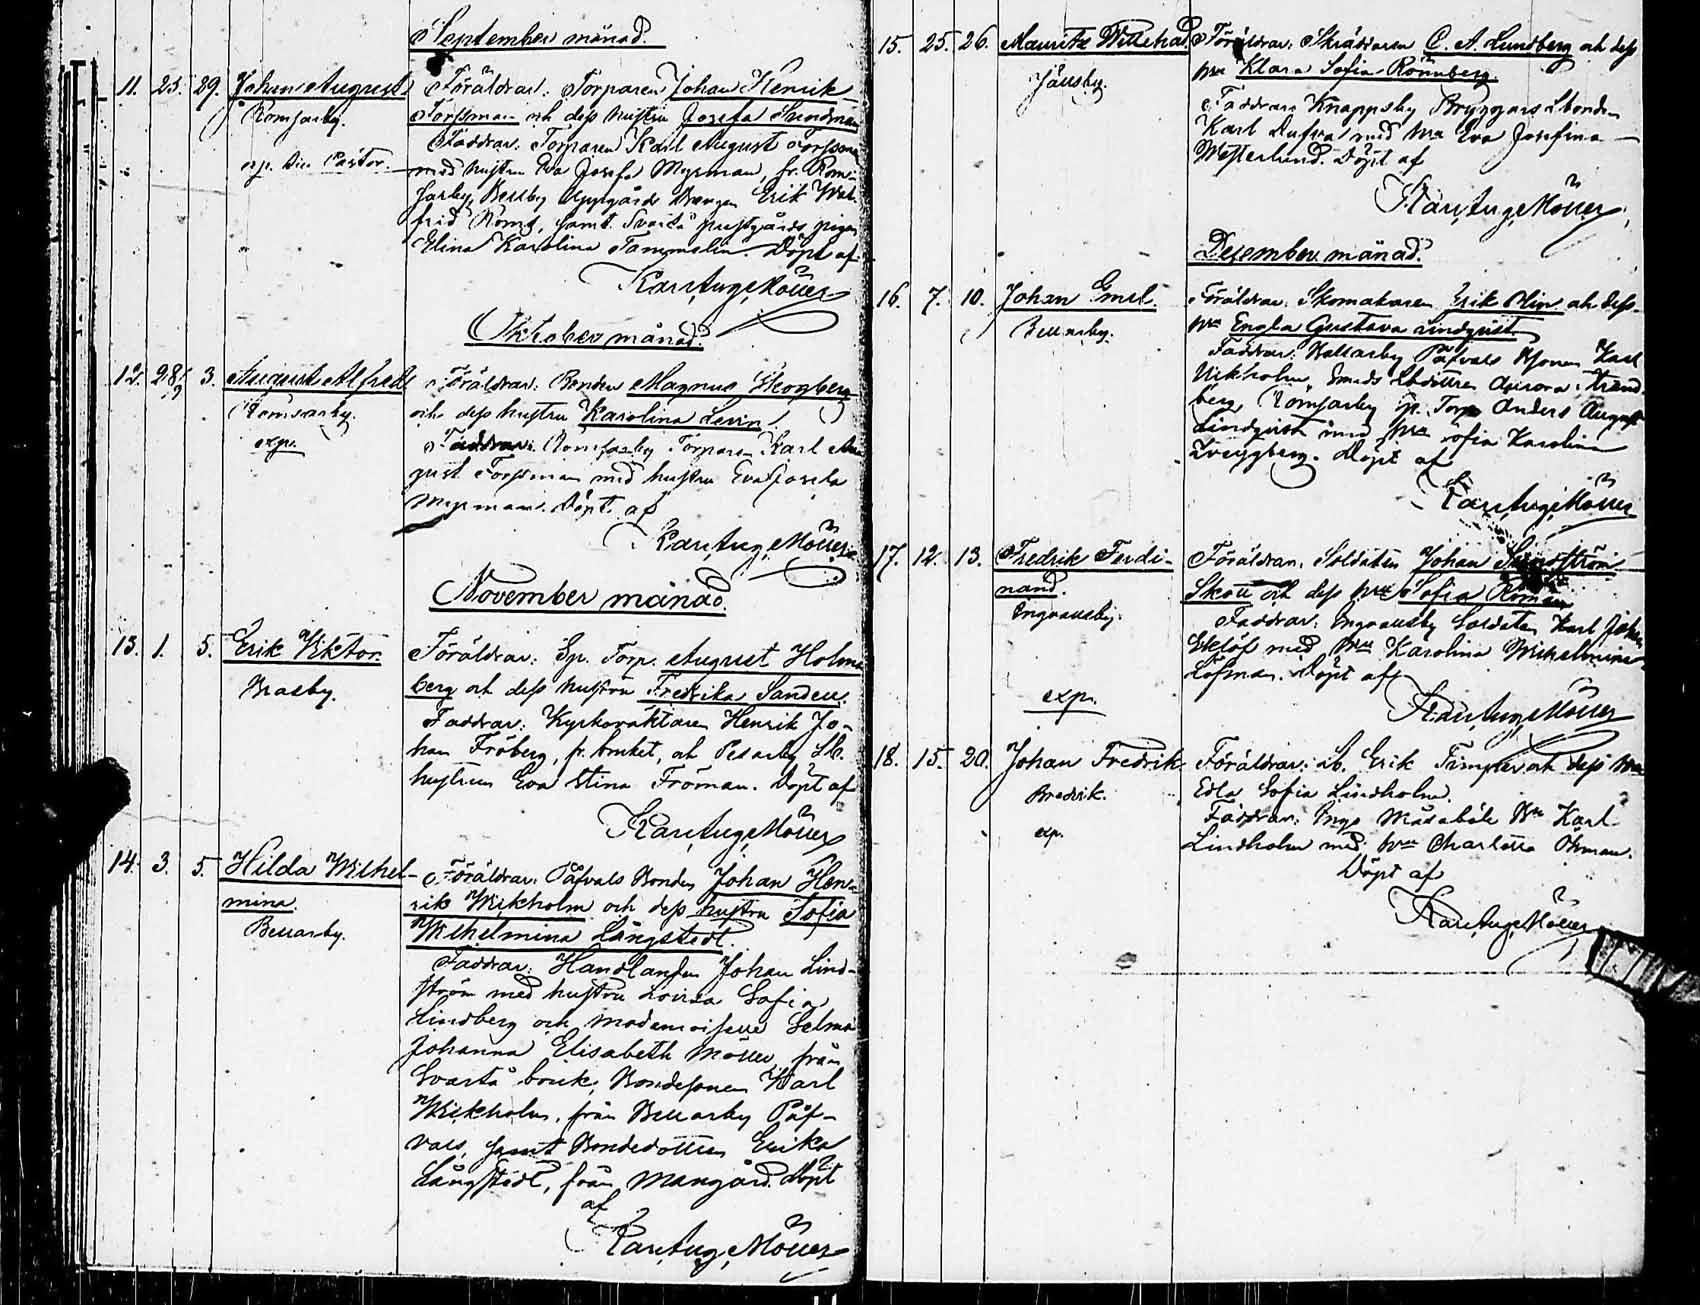 September månad.
11. 25. 29. Johan August Föräldrar: Torparen Johan Henrik
Romsarby. Forssman och dess hustru Josefa Sundman
Faddrar: Torparen Karl August Forssman
exp. Pastor. med hustru Eva Josefa Myrman, fr. Rom-
sarby, Bellby Uppgårds Drengen Erik Wil-
frid Roms, samt Svartå prestgårds pigan
Elina Karolina Tammelin. Döpt af
Karl Aug. Möller
Oktober månad.
12. 28/9 3. August Alfred Föräldrar: Bonden Magnus Skogberg
Romsarby. och dess hustru Karolina Levin.
exp. Faddrar: Romsarby Torparen Karl Au-
gust Forssman med hustru Eva Josefa
Myrman. Döpt af
Karl Aug. Möller
November månad.
13. 1. 5. Erik Viktor. Föräldrar: Sp. Torp. August Holm-
Brasby. berg och dess hustru Fredrika Sandell.
Faddrar: Kyrkovaktaren Henrik Jo-
han Fröberg, fr. bruket, och Persarby
hustrun Eva Stina Froman. Döpt af
Karl Aug. Möller
14. 3. 5. Hilda Wilhel- Föräldrar: Påfvals Bonden Johan Hen-
mina. rik Wikholm och dess hustru Sofia
Bellarby. Wilhelmina Långstedt.
Faddrar: Handlanden Johan Lind-
ström med hustru Lovisa Sofia
Lindberg och Mademoiselle Selma
Johanna Elisabeth Möller, från
Svartå bruk, Bondesonen Karl
Wikholm, från Bellarby Påf-
vals, samt Bondedottren Erika
Långstedt, från Mangård. Döpt
af
Karl Aug. Möller
15. 25. 26. Mauritz Willehad Föräldrar: Skräddaren C. A. Lundberg och dess
Jällsby. hru Klara Sofia Rönnberg.
Faddrar: Knappsby Bryggars bonden
Karl Dufva med hru Eva Josefina
Westerlund. Döpt af
Karl Aug. Möller
December månad.
16. 7. 10. Johan Emil. Föräldrar: Skomakaren Erik Olin och dess
Bellarby. hru Engla Gustava Lindqvist.
Faddrar: Bellarby Påfvals Bsonen Karl
Wikholm, Smeds Bdottren Aurora Strand-
berg, Romsarby sp. Torp. Anders August
Lindqvist med hru Sofia Karolina
Sveggberg. Döpt af
Karl Aug. Möller
17. 12. 13. Fredrik Ferdi- Föräldrar: Soldaten Johan Sundström
nand. Skou och dess hru Sofia Roman
Ingvallsby. Faddrar: Ingvallsby Soldaten Karl Johan
Eklöf med hru Karolina Wilhelmina
Löfman. Döpt af
exp.
Karl Aug. Möller
18. 15. 20. Johan Fredrik. Föräldrar: Erik Fingler och dess hru
Bredvik. Edla Sofia Lindholm.
exp. Faddrar: Ingo Måsaböle Bn Karl
Lindholm med hru Charlotta Öhman.
Döpt af
Karl Aug. Möller